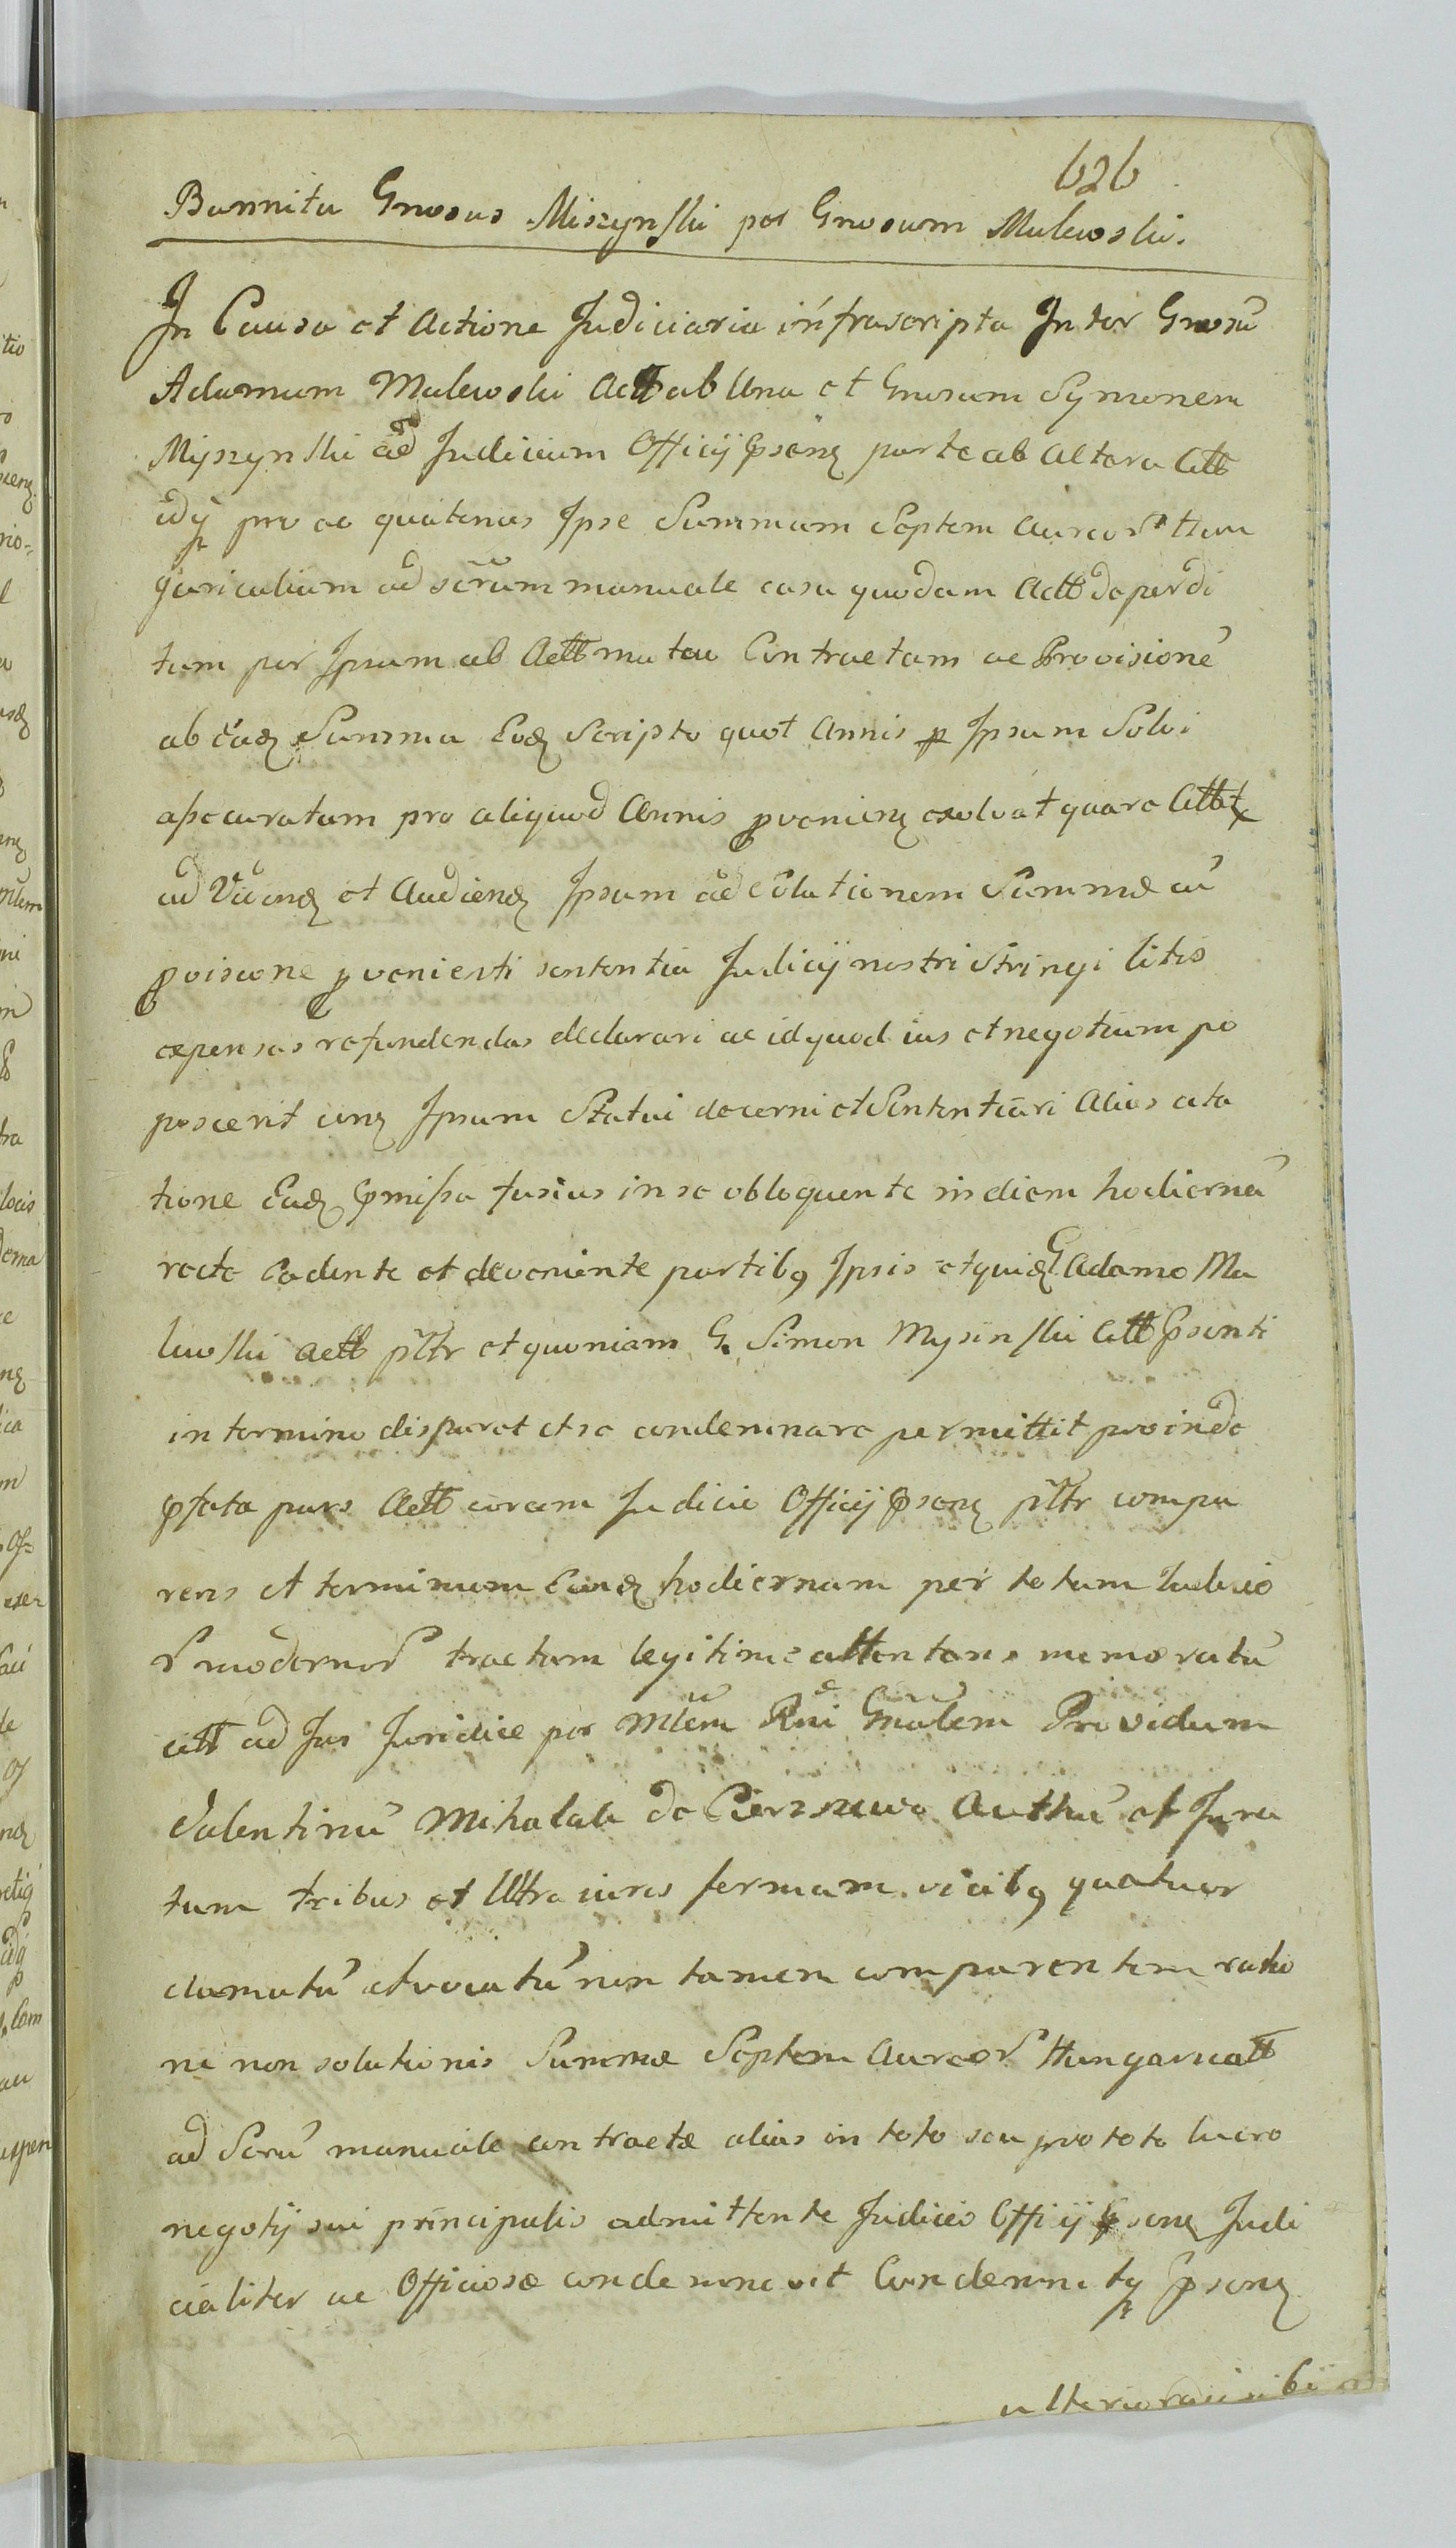 626
Bannita Gnosus Miszynski per Gnosum Malewski.
In Causa et Actione Judiciaria infrascripta Inter Gnosū
Adamum Malewski Actt ab Una et Gnosum Symonem
Myszynski ad Judicium Officij Psenʒ parte ab Altera Citt
idq pro eo quatenus Ipse Summam Septem Aureor Hun
garicalium ad scrum manuale casu quodam Actt deperdi
tum per Ipsum ab Actt mutau Contractam ac Provisionē
ab eadʒ Summa Eodʒ Scripto quot Annis p Ipsum Solvi
assecuratam pro aliquod Annis pvenienʒ exolvat quare Citt
ad Videndʒ et Audiendʒ Ipsum ad solutionem Summæ cū
pvisione pvenienti sententia Judicij nostri Stringi litis
expensas refundendas declarari ac id quod ius et negotium po
poscerit cirʒ Ipsum Statui decerni et Sententiari Alias cita
tione Eadʒ Pmissa fusius in se obloquente in diem hodiernā
recte Cadente et deveniente partibʒ Ipsis et quidʒ G Adamo Ma
lewski Actt pltr et quoniam G. Simon Mysinski Citt Psenti
in termino disparet et se condemnare permittit proinde
Pfata pars Actt coram Judicio Officij Psenʒ pltr compa
rens et terminum Eundʒ hodiernum per totum Judicio
modernor tractum legitime attentans memoratū
citt ad Jus Juridice per Mlem Rni Gnalem Providum
Valentinū Mihalak de Cierszewo Authū et Jura
tum tribus et Ultra iuris formam vicibʒ quatuor
clamatū et vocatū non tamen comparentem ratio
ne non solutionis Summæ Septem Aureor Hungaricatt
ad Scrū manuale contractæ alias in toto seu pro toto lucro
negotij sui principalis admittente Judicio Officij Psenʒ Judi
cialiter ac Officiose condemnavit Condemnatq Psenʒ
ulteriora sibi